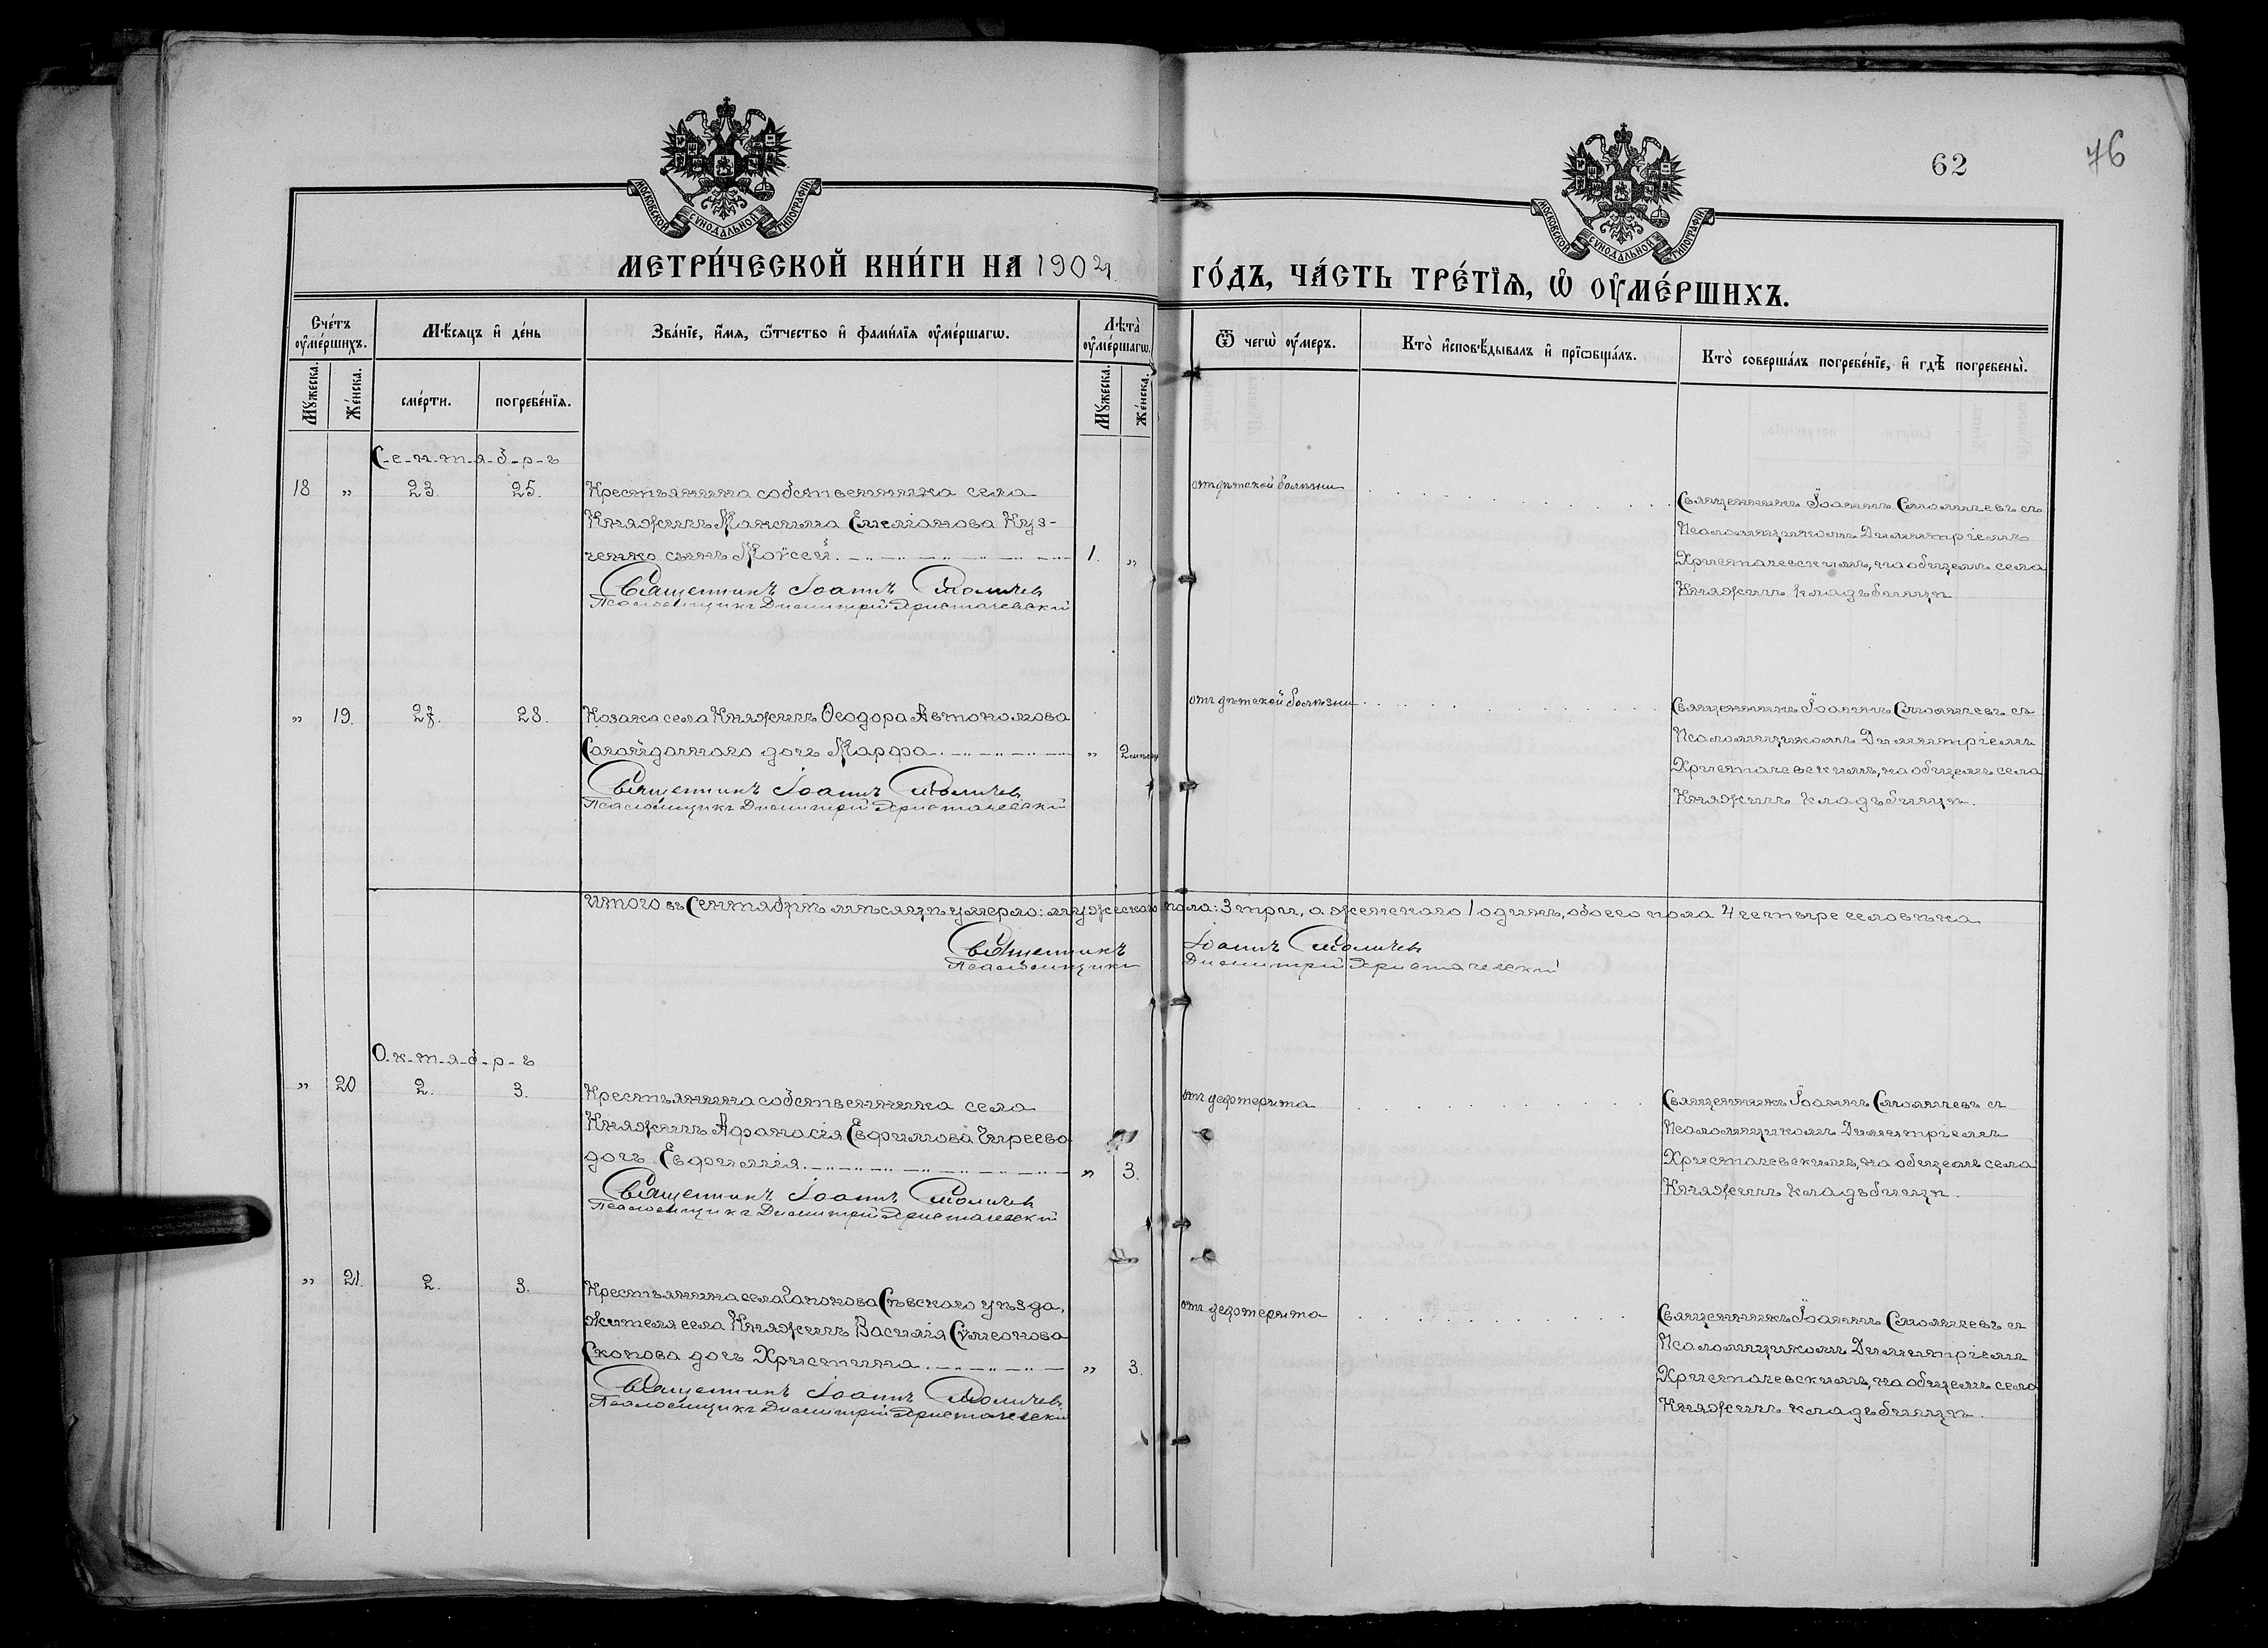 МОСКОВСКОЙ СѴНОДАЛЬНОЙ ТИПОГРАФІИ
МОСКОВСКОЙ СѴНОДАЛЬНОЙ ТИПОГРАФІИ
62
76
МЕТРИ́ЧЕСКОЙ КНИ́ГИ НА 1904
ГО́ДЪ, ЧА́СТЬ ТРЕ́ТІѦ, Ѡ҆ ОУ҆МЕ́РШИХЪ.
Сче́тъ оу҆ме́ршихъ.
Мꙋ́жеска.
Же́нска.
Мѣ́сяцъ и҆ де́нь
сме́рти.
погребе́нїя.
Зва́нїе, и҆́мя, ѻ҆́тчество и҆ фами́лїя оу҆ме́ршагѡ.
Лѣ́та оу҆ме́ршагѡ.
Мꙋ́жеска.
Же́нска.
Ѿ чегѡ̀ оу҆́меръ.
Кто̀ и҆сповѣ́дывалъ и҆ прїѡбща́лъ.
Кто̀ соверша́лъ погребе́нїе, и҆ гдѣ̀ погребены̀.
С-е-н-т-я-б-р-ь
18 „ 23. 25. Крестьянина собственника села
Княжичъ Максима Емеліанова Куз-
ченко сынъ Моѵсей. 1. „
Священникъ Іоаннъ Смоличев
Псаломщикъ Димитрій Христачевскій
отъ дѣтской болѣзни
Священникъ Іоаннъ Смоличевъ съ
Псаломщикомъ Димитріемъ
Христачевскимъ, на общемъ села
Княжичъ кладъбищѣ
„ 19. 27. 28. Козака села Княжичъ Ѳеодора Автономова
Сагайдачнаго дочь Марфа. „ 2 мѣсяц
Священникъ Іоаннъ Смоличев
Псаломщикъ Димитрій Христачевскій
отъ дѣтской болѣзни
Священникъ Іоаннъ Смоличевъ съ
Псаломщикомъ Димитріемъ
Христачевскимъ, на общемъ села
Княжичъ кладъбищѣ.
Итого въ Сентябрѣ мѣсяцѣ умерло: мужескаго пола: 3 три, а женскаго 1 одинъ, обоего пола 4 четыре человѣка
Священникъ Іоаннъ Смоличев
Псаломщикъ Димитрій Христачевскій
О-к-т-я-б-р-ь
„ 20 2. 3. Крестьянина собственника села
Княжичъ Аѳанасія Евфимова Чиреева
дочь Евфимія. „ 3.
Священникъ Іоаннъ Смоличев
Псаломщикъ Димитрій Христачевскій
отъ дефтерита
Священникъ Іоаннъ Смоличевъ съ
Псаломщикомъ Димитріемъ
Христачевскимъ, на общемъ села
Княжичъ кладъбищѣ.
„ 21. 2. 3. Крестьянина села Гапонова Сѣвскаго уѣзда,
жителя села Княжичъ Василія Сѵмеонова
Скопова дочь Христина. „ 3.
Священникъ Іоаннъ Смоличев
Псаломщикъ Димитрій Христачевскій
отъ дефтерита
Священникъ Іоаннъ Смоличевъ съ
Псаломщикомъ Димитріемъ
Христачевскимъ, на общемъ села
Княжичъ кладъбищѣ.